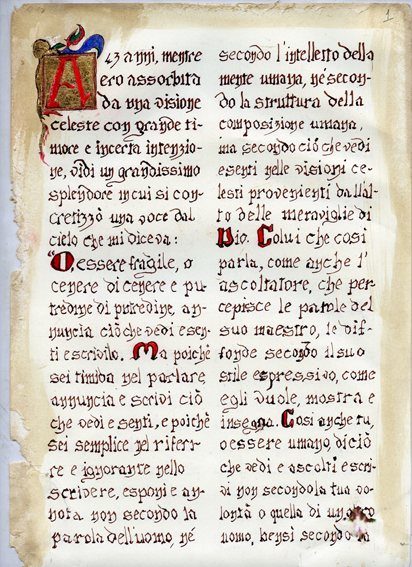 1
A 43 anni, mentre
ero assorbita
da una visione
celeste con grande ti-
more e incerta intenzio-
ne, vidi un grandissimo
splendore in cui si con-
cretizzò una voce dal
cielo che mi diceva:
“O essere fragile, o
cenere di cenere e pu-
tredine di putredine, an-
nuncia ciò che vedi e sen-
ti e scrivilo. Ma poichè
sei timida nel parlare
annuncia e scrivi ciò
che vedi e senti, e poichè
sei semplice nel riferi-
re e ignorante nello
scrivere, esponi e an-
nota non secondo la
parola dell'uomo, né
secondo l'intelletto della
mente umana, né secon-
do la struttura della
composizione umana,
ma secondo ciò che vedi
e senti nelle visioni ce-
lesti provenienti dall'al-
to delle meraviglie di
Dio. Colui che così
parla, come anche l'
ascoltatore, che per-
cepisce le parole del
suo maestro, le dif-
fonde secondo il suo
stile espressivo, come
egli vuole, mostra e
insegna. Così anche tu,
o essere umano, di ciò
che vedi e ascolti e scri-
vi non secondo la tua vo-
lontà o quella di un altro
uomo, bensì secondo la